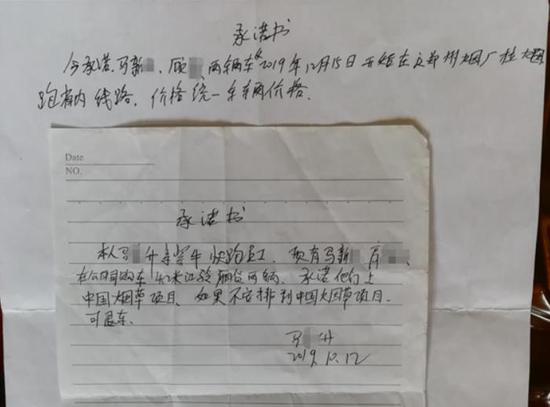 承诺书
今承诺马新 顾 两辆车2019年12月15日开始在 郑州烟厂拉大烟
跑省内线路,价格统一车辆价格.
Date
NO.
承诺书
本人马 升 员工,现有马新
在公司购车4.2米江铃 两辆,承诺他们上
中国烟草项目,如果不安排到中国烟草项目
可退车.
马 升
2019.10.12